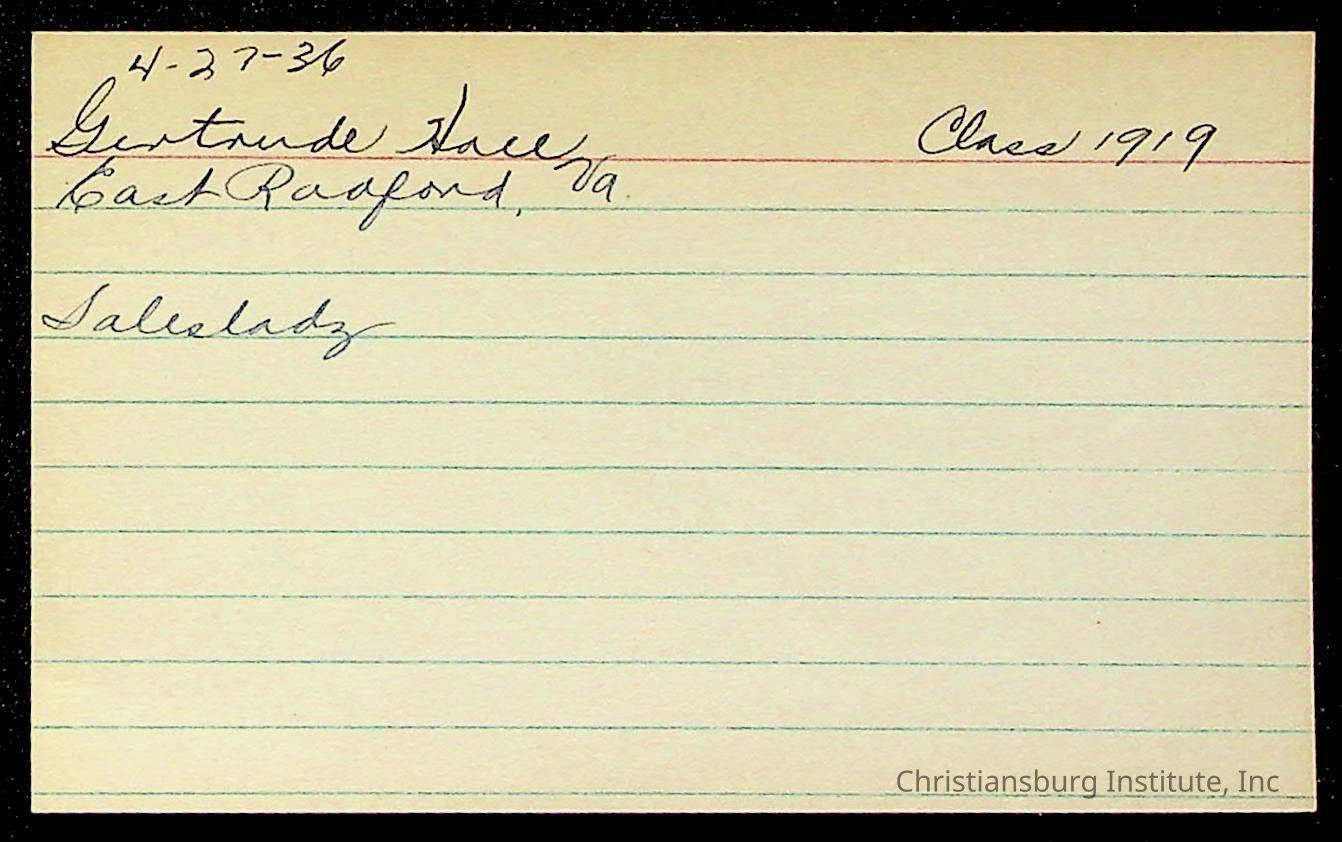 4-27-36
Gertrude Hall Class 1919
East Radford, Va.
Saleslady
Christiansburg Institute, Inc